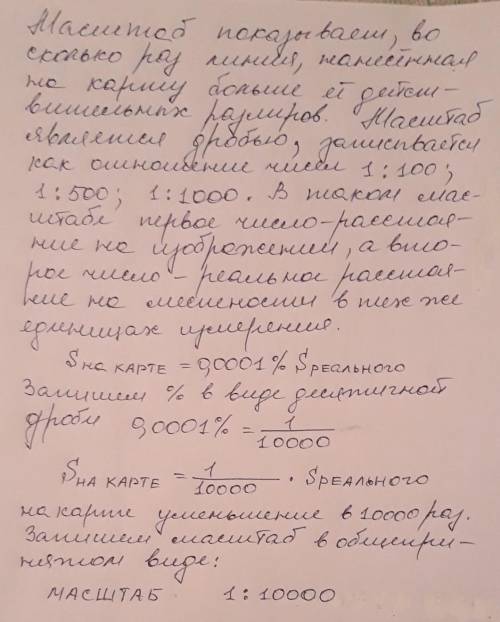 Масштаб показывает, во
сколько раз линия, нанесённая
на карту больше её дейст-
вительных размеров. Масштаб
является дробью, записывается
как отношение чисел 1:100;
1:500; 1:1000. В таком мас-
штабе первое число-расстоя-
ние на изображении, а вто-
рое число - реальное расстоя-
ние на местности в тех же
единицах измерения.
S НА КАРТЕ = 0,0001% S РЕАЛЬНОГО
Запишем % в виде десятичной
дроби 0,0001% = 1/10000
S НА КАРТЕ = 1/10000 · S РЕАЛЬНОГО
на карте уменьшение в 10000 раз.
Запишем масштаб в общепри-
нятом виде:
МАСШТАБ 1:10000